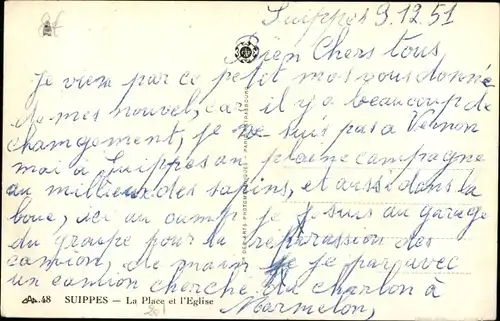 Suippes 9.12.51
Bien Chers tous
Je viens par ce petit mot vous donné
de mes nouvel, car il y a beaucoup de
changement, je ne suis pas a Vernon
mai a Suippes en plaine campagne
au millieux des sapins, et aussi dans la
boue, ici au camp je suis au garage
du groupe pour la reparassion des
camion, de main je par avec
un camion cherche du charbon à
Mormelon,
48 SUIPPES — La Place et l'Eglise